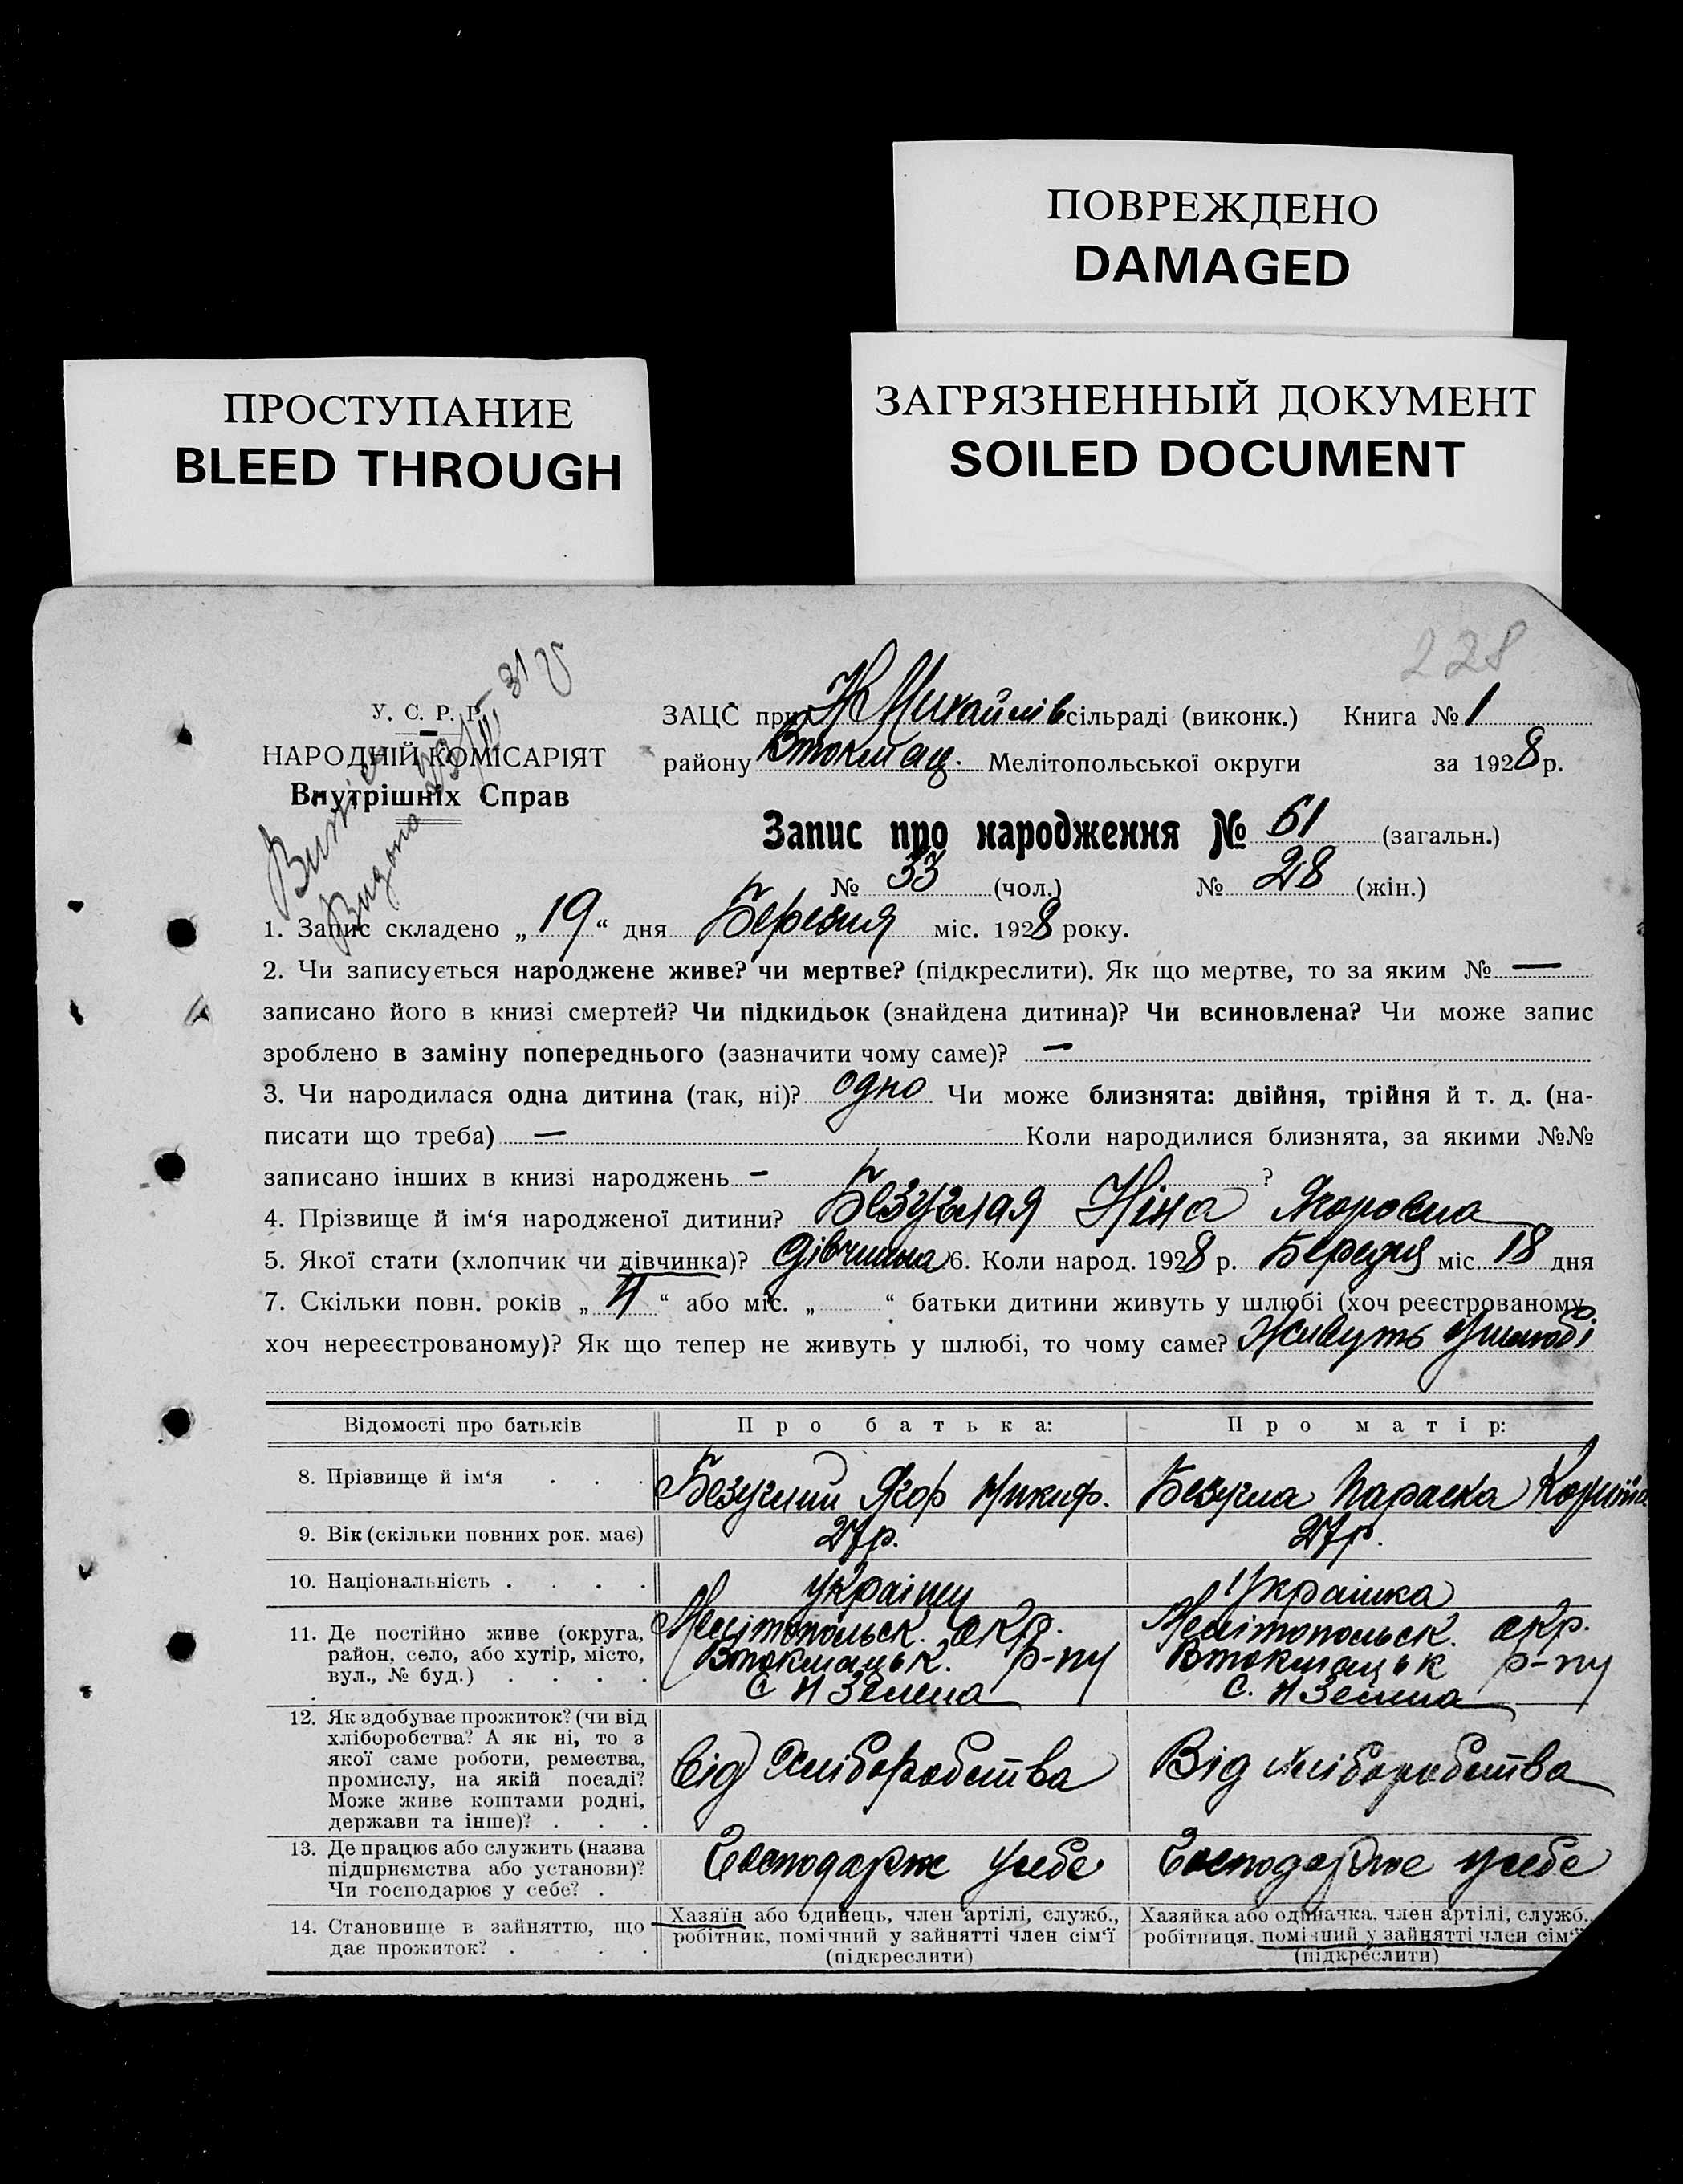 ПОВРЕЖДЕНО
DAMAGED
ПРОСТУПАНИЕ
BLEED THROUGH
ЗАГРЯЗНЕННЫЙ ДОКУМЕНТ
SOILED DOCUMENT
228
У. С. Р. Р.
НАРОДНІЙ КОМІСАРІЯТ
Внутрішніх Справ
Видано
ЗАЦС при Н Михайлів сільраді (виконк.) Книга № 1
району Втокмац. Мелітопольської округи за 1928 р.
Запис про народження № 61 (загальн.)
№ 33 (чол.) № 28 (жін.)
1. Запис складено „19“ дня Березня міс. 1928 року.
2. Чи записується народжене живе? чи мертве? (підкреслити). Як що мертве, то за яким № —
записано його в книзі смертей? Чи підкидьок (знайдена дитина)? Чи всиновлена? Чи може запис
зроблено в заміну попереднього (зазначити чому саме)? —
3. Чи народилася одна дитина (так, ні)? одно Чи може близнята: двійня, трійня й т. д. (на-
писати що треба) — Коли народилися близнята, за якими №№
записано інших в книзі народжень — ?
4. Прізвище й ім‘я народженої дитини? Безуглая Ніна Якоровна
5. Якої стати (хлопчик чи дівчинка)? Дівчина 6. Коли народ. 1928 р. Березня міс. 18 дня
7. Скільки повн. років „ “ або міс. „ “ батьки дитини живуть у шлюбі (хоч реєстрованому,
хоч нереєстрованому)? Як що тепер не живуть у шлюбі, то чому саме? Живуть Ушлюбі
Відомості про батьків Про батька: Про матір:
8. Прізвище й ім‘я . . . Безуглий Якор Никиф. Безугла Параска
9. Вік (скільки повних рок. має) 27р. 27р.
10. Національність . . . . Українц Українка
11. Де постійно живе (округа, Мелітопольск. окр. Мелітопольск. окр.
район, село, або хутір, місто, Втокмацьк. р-ну Втокмацьк р-ну
вул., № буд.) . . . . с Н Зелена с. Н Зелена
12. Як здобуває прожиток? (чи від
хліборобства? А як ні, то з
якої саме роботи, ремества,
промислу, на якій посаді? Від Хліборобства Від Хліборобства
Може живе коштами родні,
держави та інше)? . . .
13. Де працює або служить (назва
підприємства або установи)? Господарж усебе Господарже усебе
Чи господарює у себе? .
14. Становище в зайняттю, що Хазяїн або одинець, член артілі, служб., Хазяйка або одиначка, член артілі, служб.,
дає прожиток? . . . робітник, помічний у зайнятті член сім‘ї робітниця, помічний у зайнятті член сім‘ї
(підкреслити) (підкреслити)